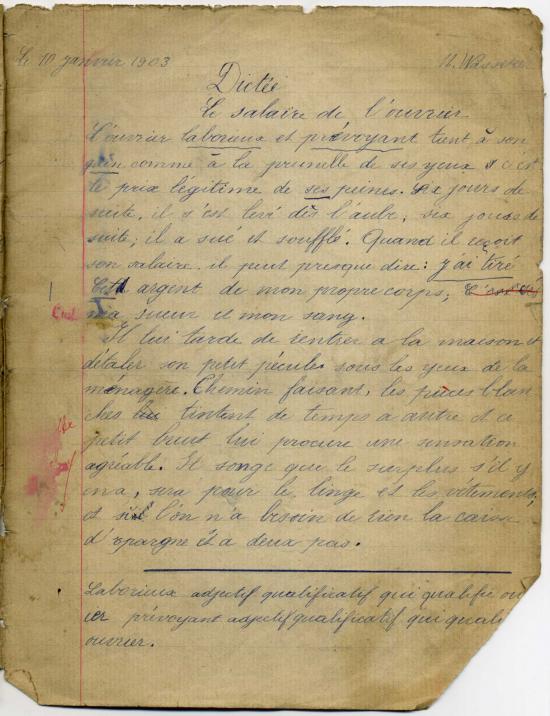 Le 10 janvier 1903
Dictée
Le salaire de l'ouvrier
L'ouvrier laborieux et prévoyant tient à son
gain comme à la prunelle de ses yeux c'est
le prix légitime de ses peines. Six jours de
suite, il s'est levé dès l'aube, six jours de
suite, il a sué et soufflé. Quand il reçoit
son salaire, il peut presque dire: j'ai tiré
Cet argent de mon propre corps,
C'est
ma sueur et mon sang.
Il lui tarde de rentrer a la maison et
d'étaler son petit pécule sous les yeux de la
ménagère. Chemin faisant, les pièces blan
ches tintent de temps à autre et ce
petit bruit lui procure une sensation
agréable. Il songe que le surplus s'il y
en a, sera pour le linge et les vêtements,
et si l'on n'a besoin de rien la caisse
d'épargne est a deux pas.
Laborieux adjectif qualificatif qui qualifie ou
ier prévoyant adjectif qualificatif qui quali
ouvrier.